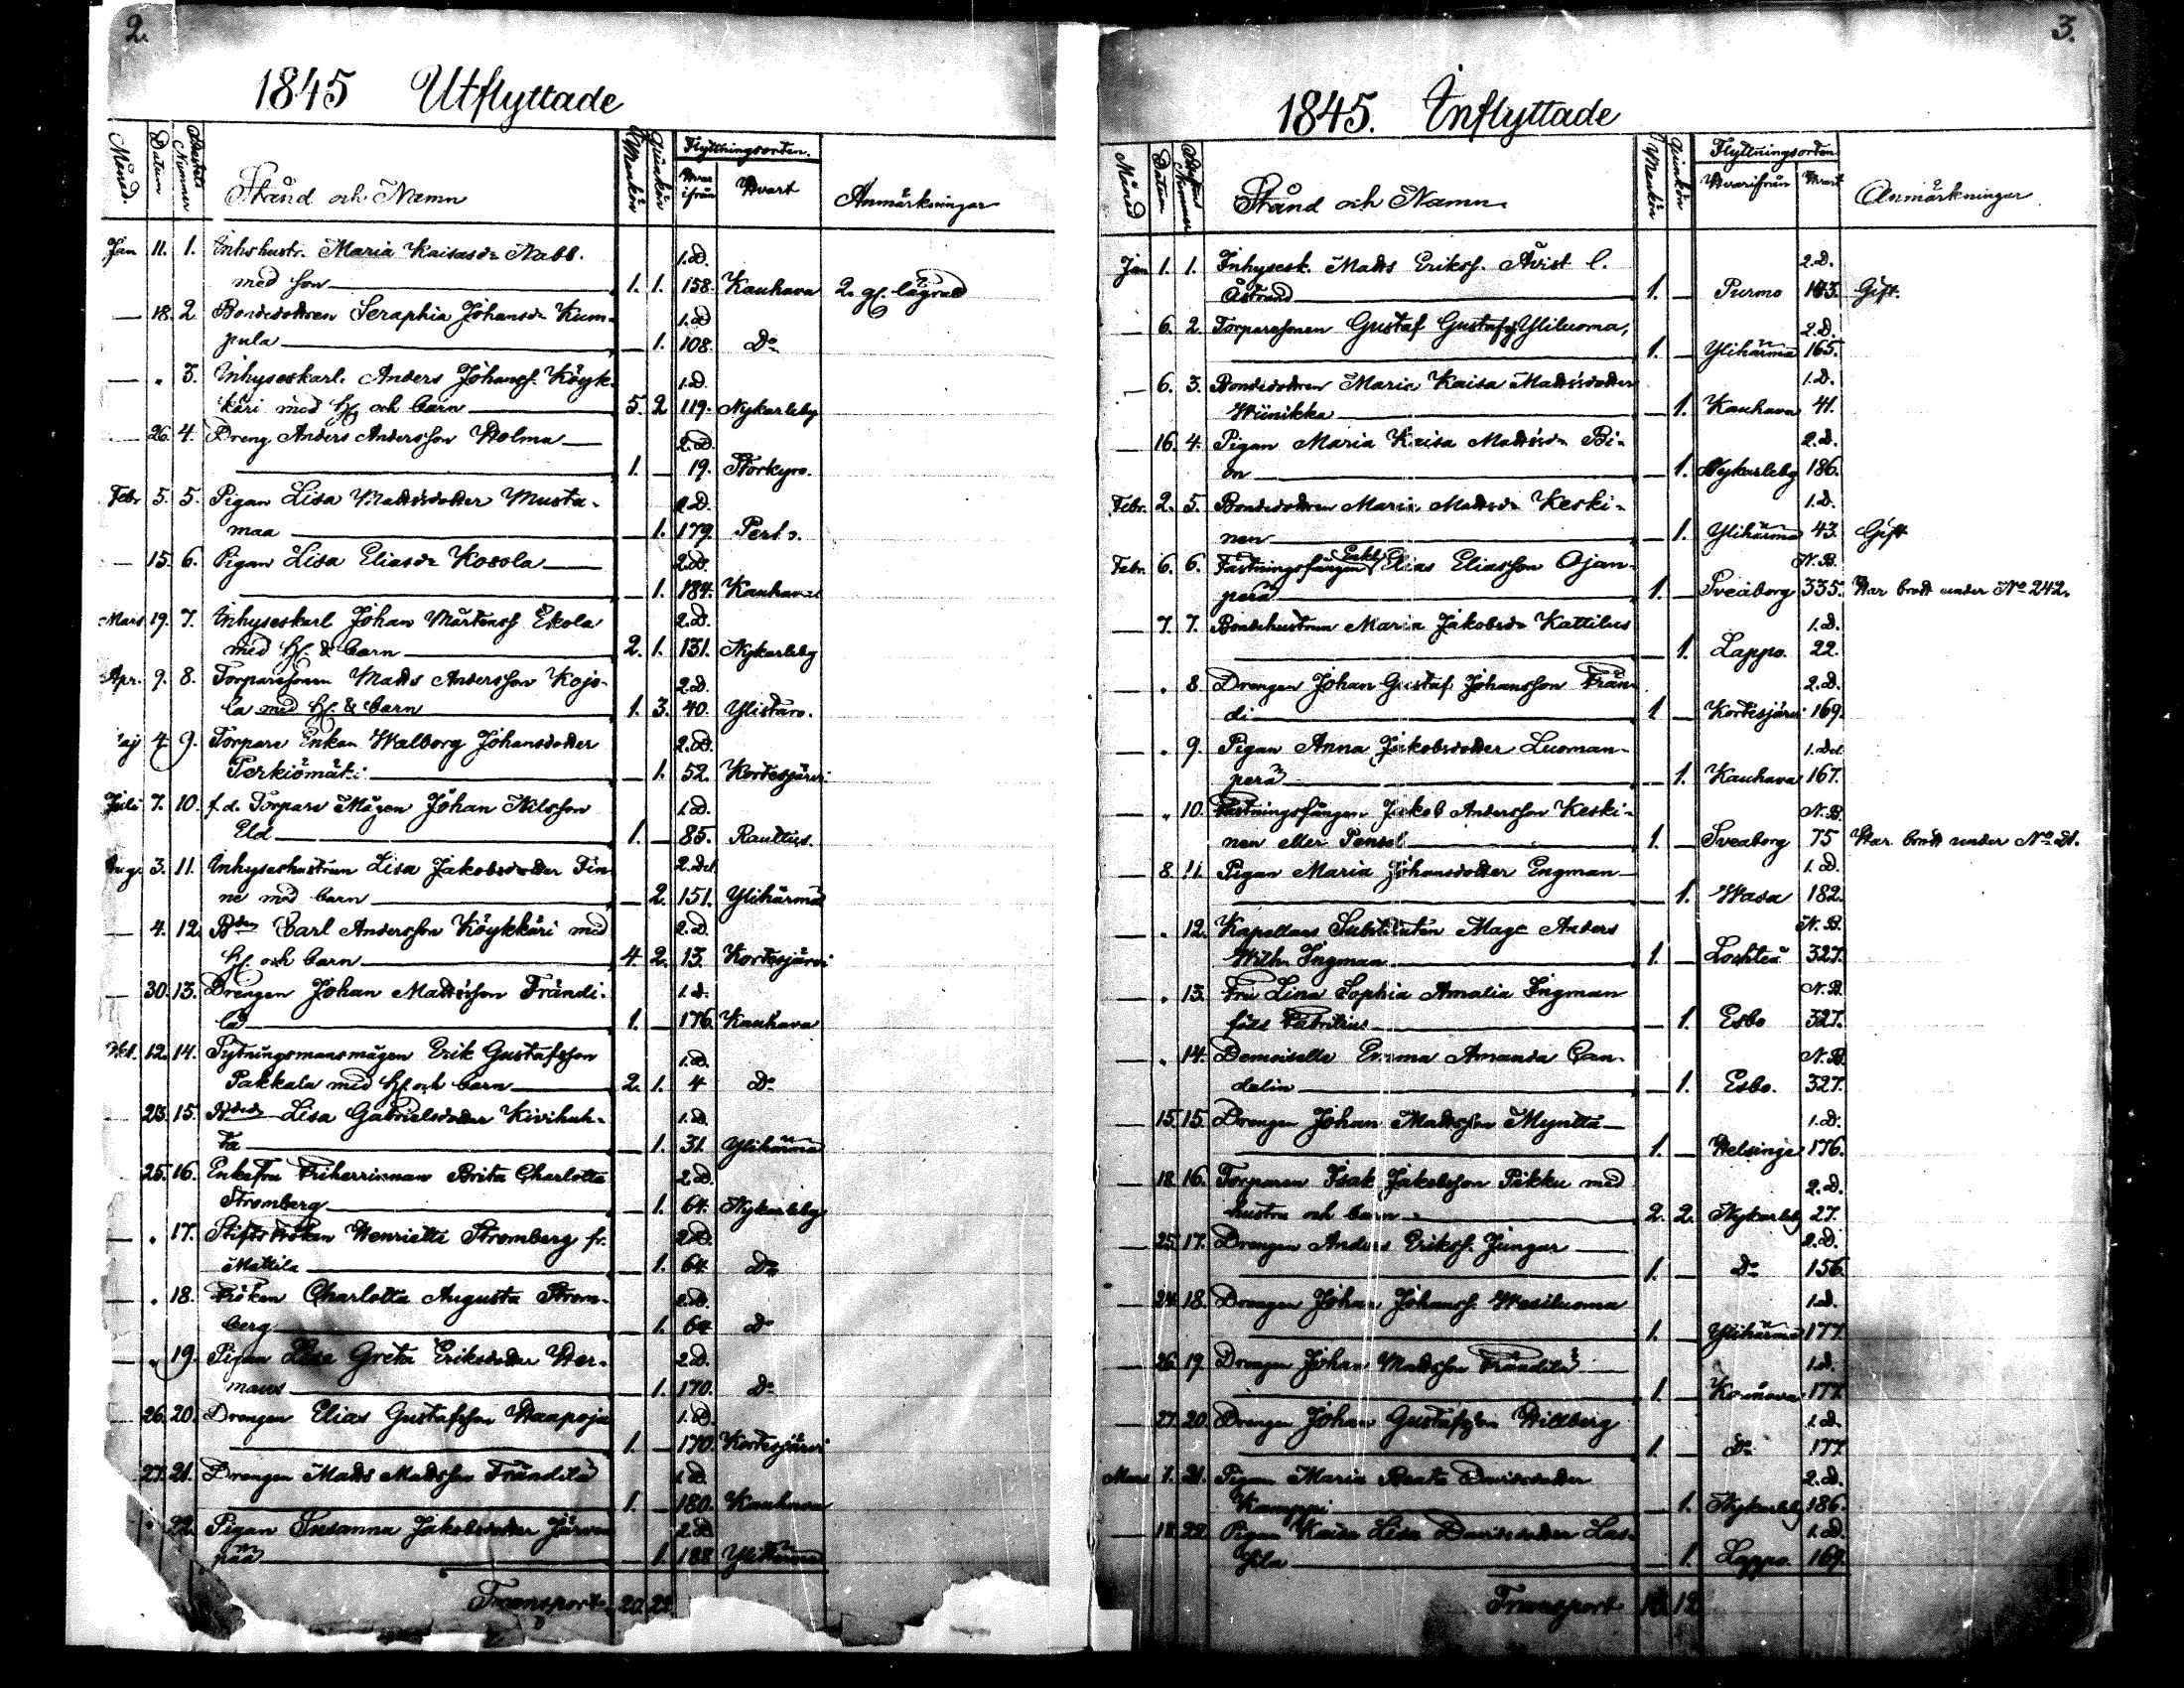 2.
1845 Utflyttade
Månad. Datum Attestets Nummer Stånd och Namn Mankön Qvinkön Flyttningsorten. Hvarifrån Hvart Anmärkningar
Jan 11. 1. Inhs hustr. Maria Kaisasdr Nabb. 1.D.
med son 1. 1. 158. Kauhava 2. gg. lägrad
— 18. 2. Bondedottren Seraphia Johansdr Kum- 1.D
pula — 1. 108. Do
— " 3. Inhyseskarl. Anders Johanss. Köyk- 1.D.
käri med H. och barn 5. 2 119. Nykarleby
— 26. 4. Dreng Anders Andersson Holma 2.D.
1. — 19. Storkyro.
Febr 5. 5. Pigan Lisa Mattsdotter Musta- 2.D.
maa — 1. 179.
— 15. 6. Pigan Lisa Eliasdr Kosola 2.D.
— 1. 184. Kauhava
Mars 19. 7. Inhyseskarl Johan Mårtenss Ekola 2.D.
med H. & barn 2. 1. 131. Nykarleby
Apr. 9. 8. Torparesonen Matts Andersson Kojo- 2.D.
la med H. & barn 1. 3. 40. Ylistaro.
Maj 4. 9. Torpare Enkan Walborg Johansdotter 2.D.
Perkiömäki — 1. 52. Kortesjärvi
Juli 7. 10. f.d. Torpare Mågen Johan Nilsson 1.D.
Eld 1. — 85. Rautus.
Aug. 3. 11. Inhyseshustrun Lisa Jakobsdotter Fin- 2.Del
ne med barn — 2. 151. Ylihärmä
— 4. 12. Bden Carl Andersson Köykkäri med 2.D.
H. och barn 4. 2. 13. Kortesjärvi
— 30. 13. Drengen Johan Mattsson Frändi- 1.d.
lä 1. — 176. Kauhava
Okt. 12. 14. Sytningsmansmågen Erik Gustafsson 1.D.
Pakkala med H. och barn 2. 1. 4 Do
— 23. 15. Lisa Gabrielsdotter Kivihuh- 1.D.
ta — 1. 31. Ylihärmä
25. 16. Enkefru Friherrinnan Brita Charlotta 2.D.
Stromberg — 1. 64. Nykarleby
— " 17. Stiftsfröken Henriette Stromberg fr. 2.D.
Mattila — 1. 64. Do
— " 18. Fröken Charlotta Augusta Strom- 2.D.
berg — 1. 64 Do
— " 19. Pigan Lisa Greta Eriksdotter Her- 2.D.
mans — 1. 170. Do
26. 20. Drengen Elias Gustafsson Haapoja 1.D.
1. — 170. Kortesjärvi
27. 21. Drengen Matts Mattsson Frändilä 1.D.
1. — 180. Kauhava
" 22. Pigan Susanna Jakobsdotter Järven- 2.D
pää — 1. 188 Ylihärmä
Transport 20. 22
3.
1845. Inflyttade
Månad Datum Nummer Stånd och Namn Mankön Qvinkön Flyttningsorten Hvarifrån Hvart Anmärkningar
Jan 1. 1. Inhysesk. Matts Erikss. Avist l. 2.D.
Åstrand 1. — Purmo 163. Gift.
— 6. 2. Torparesonen Gustaf Gustafss. Yliluoma, 2.D.
1. — Ylihärmä 165.
— 6. 3. Bondedottren Maria Kaisa Mattsdotter 1.D.
Wiinikka — 1. Kauhava 41.
16. 4. Pigan Maria Kaisa Mattsdr Bi- 2.D.
on — 1. Nykarleby 186.
Febr. 2. 5. Bondedottren Maria Mattsdr Keski- 1.D.
nen — 1. Ylihärmä 43. Gift
Febr. 6. 6. Fästningsfången Enkl. Elias Eliasson Ojan- N.B.
perä 1. — Sveaborg 335. Har brott under No 242.
— 7. 7. Bondehustrun Maria Jakobsdr Kattilus 1.D.
— 1. Lappo. 22.
— " 8. Drengen Johan Gustaf Johansson Frän- 2.D.
di 1 — Kortesjärvi 169.
— " 9. Pigan Anna Jakobsdotter Luoman- 1.Del
perä — 1. Kauhava 167.
— " 10. Fästningsfången Jakob Andersson Keski- N.B.
nen eller Pensel 1. — Sveaborg 75 Har brott under No 21.
— 8. 11. Pigan Maria Johansdotter Engman 1.D.
— 1. Wasa 182.
— " 12. Kapellans Substituten Mag. Anders N.B.
Wilh. Ingman 1. — Lochteå 327.
— " 13. Fru Lina Sophia Amalia Ingman N.B.
född Fabritius — 1. Esbo 327.
— " 14. Demoiselle Emma Amanda Can- N.B
delin — 1. Esbo. 327.
— 15. 15. Drengen Johan Mattsson Myntta 1.D.
1. — Helsinge 176.
— 18. 16. Torparen Isak Jakobsson Pikku med 2.D.
hustru och barn 2. 2. Nykarleby 27.
— 25. 17. Drengen Anders Erikss. Jungar 2.D.
1. — Do 156.
— 24. 18. Drengen Johan Johanss. Wesiluoma 1.D.
1. — Ylihärmä 177.
— 26. 19. Drengen Johan Mattsson Frändilä 1.D.
1. — Kauhava 177.
— 27. 20. Drengen Johan Gustafsson Willberg 1.D.
1. — Do 177.
Mars 1. 21. Pigan Maria Beata Davidsdotter 2.D.
Kamppi — 1. Nykarleby 186.
— 18. 22. Pigan Kaisa Lisa Davidsdotter Las- 1.D.
sila — 1. Lappo. 169.
Transport 12